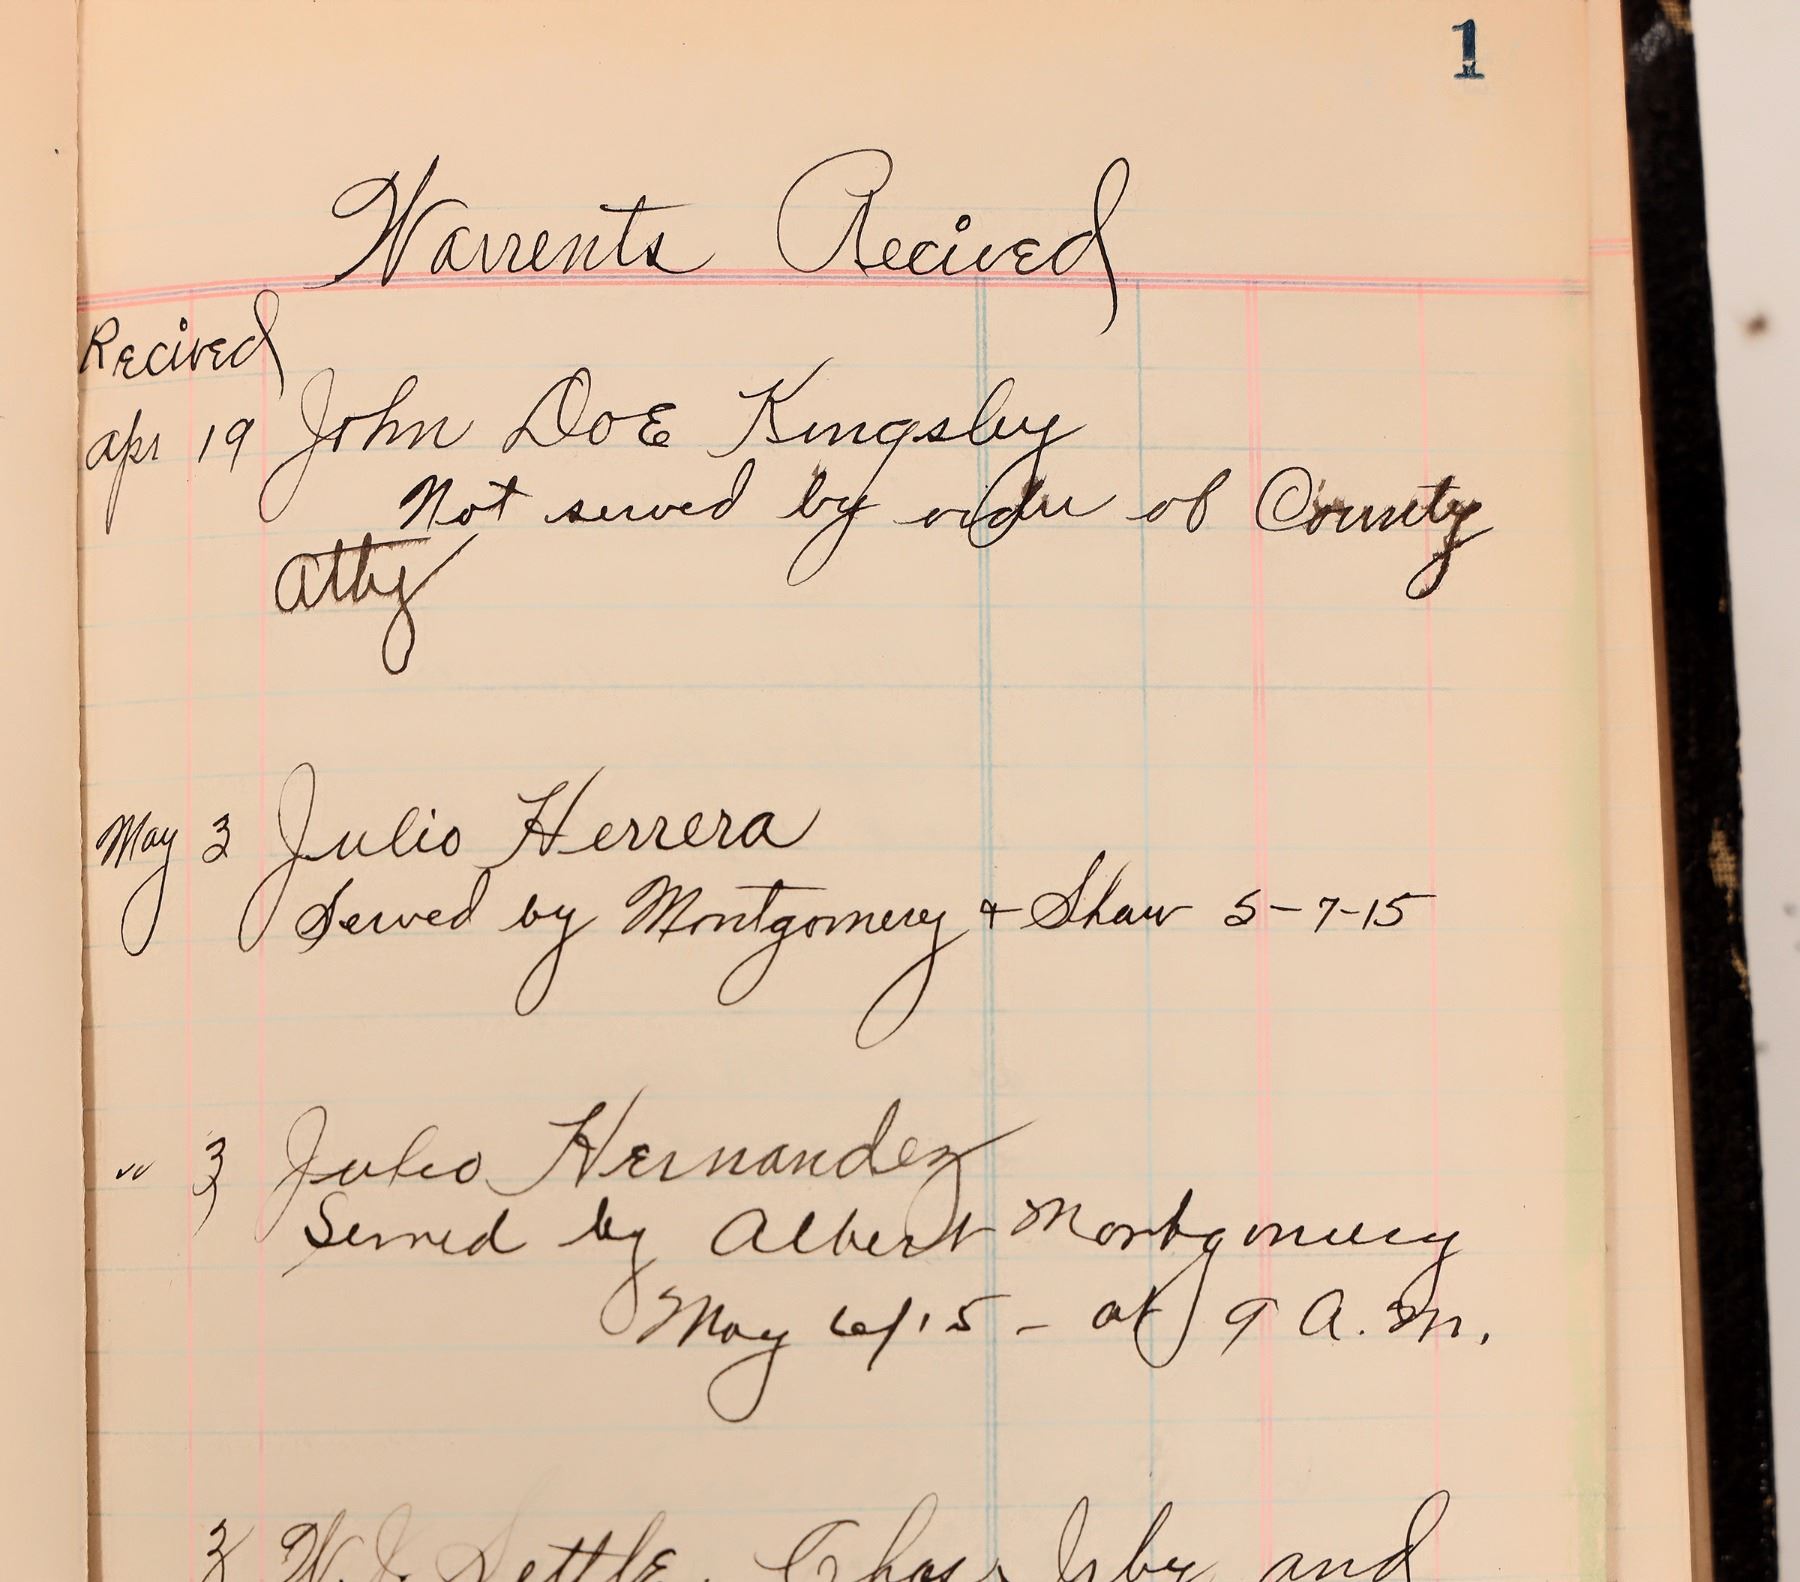 1
Warrents Recived
Recived
Apr 19 John Doe Kingsby
Not served by order of County
Atty
May 3 Julio Herrera
Served by Montgomery + Shaw 5-7-15
" 3 Julio Hernandez
Served by Albert Montgomery
May 6/15 - at 9 A.M.
3 W. J. Settle, Chas Irby and